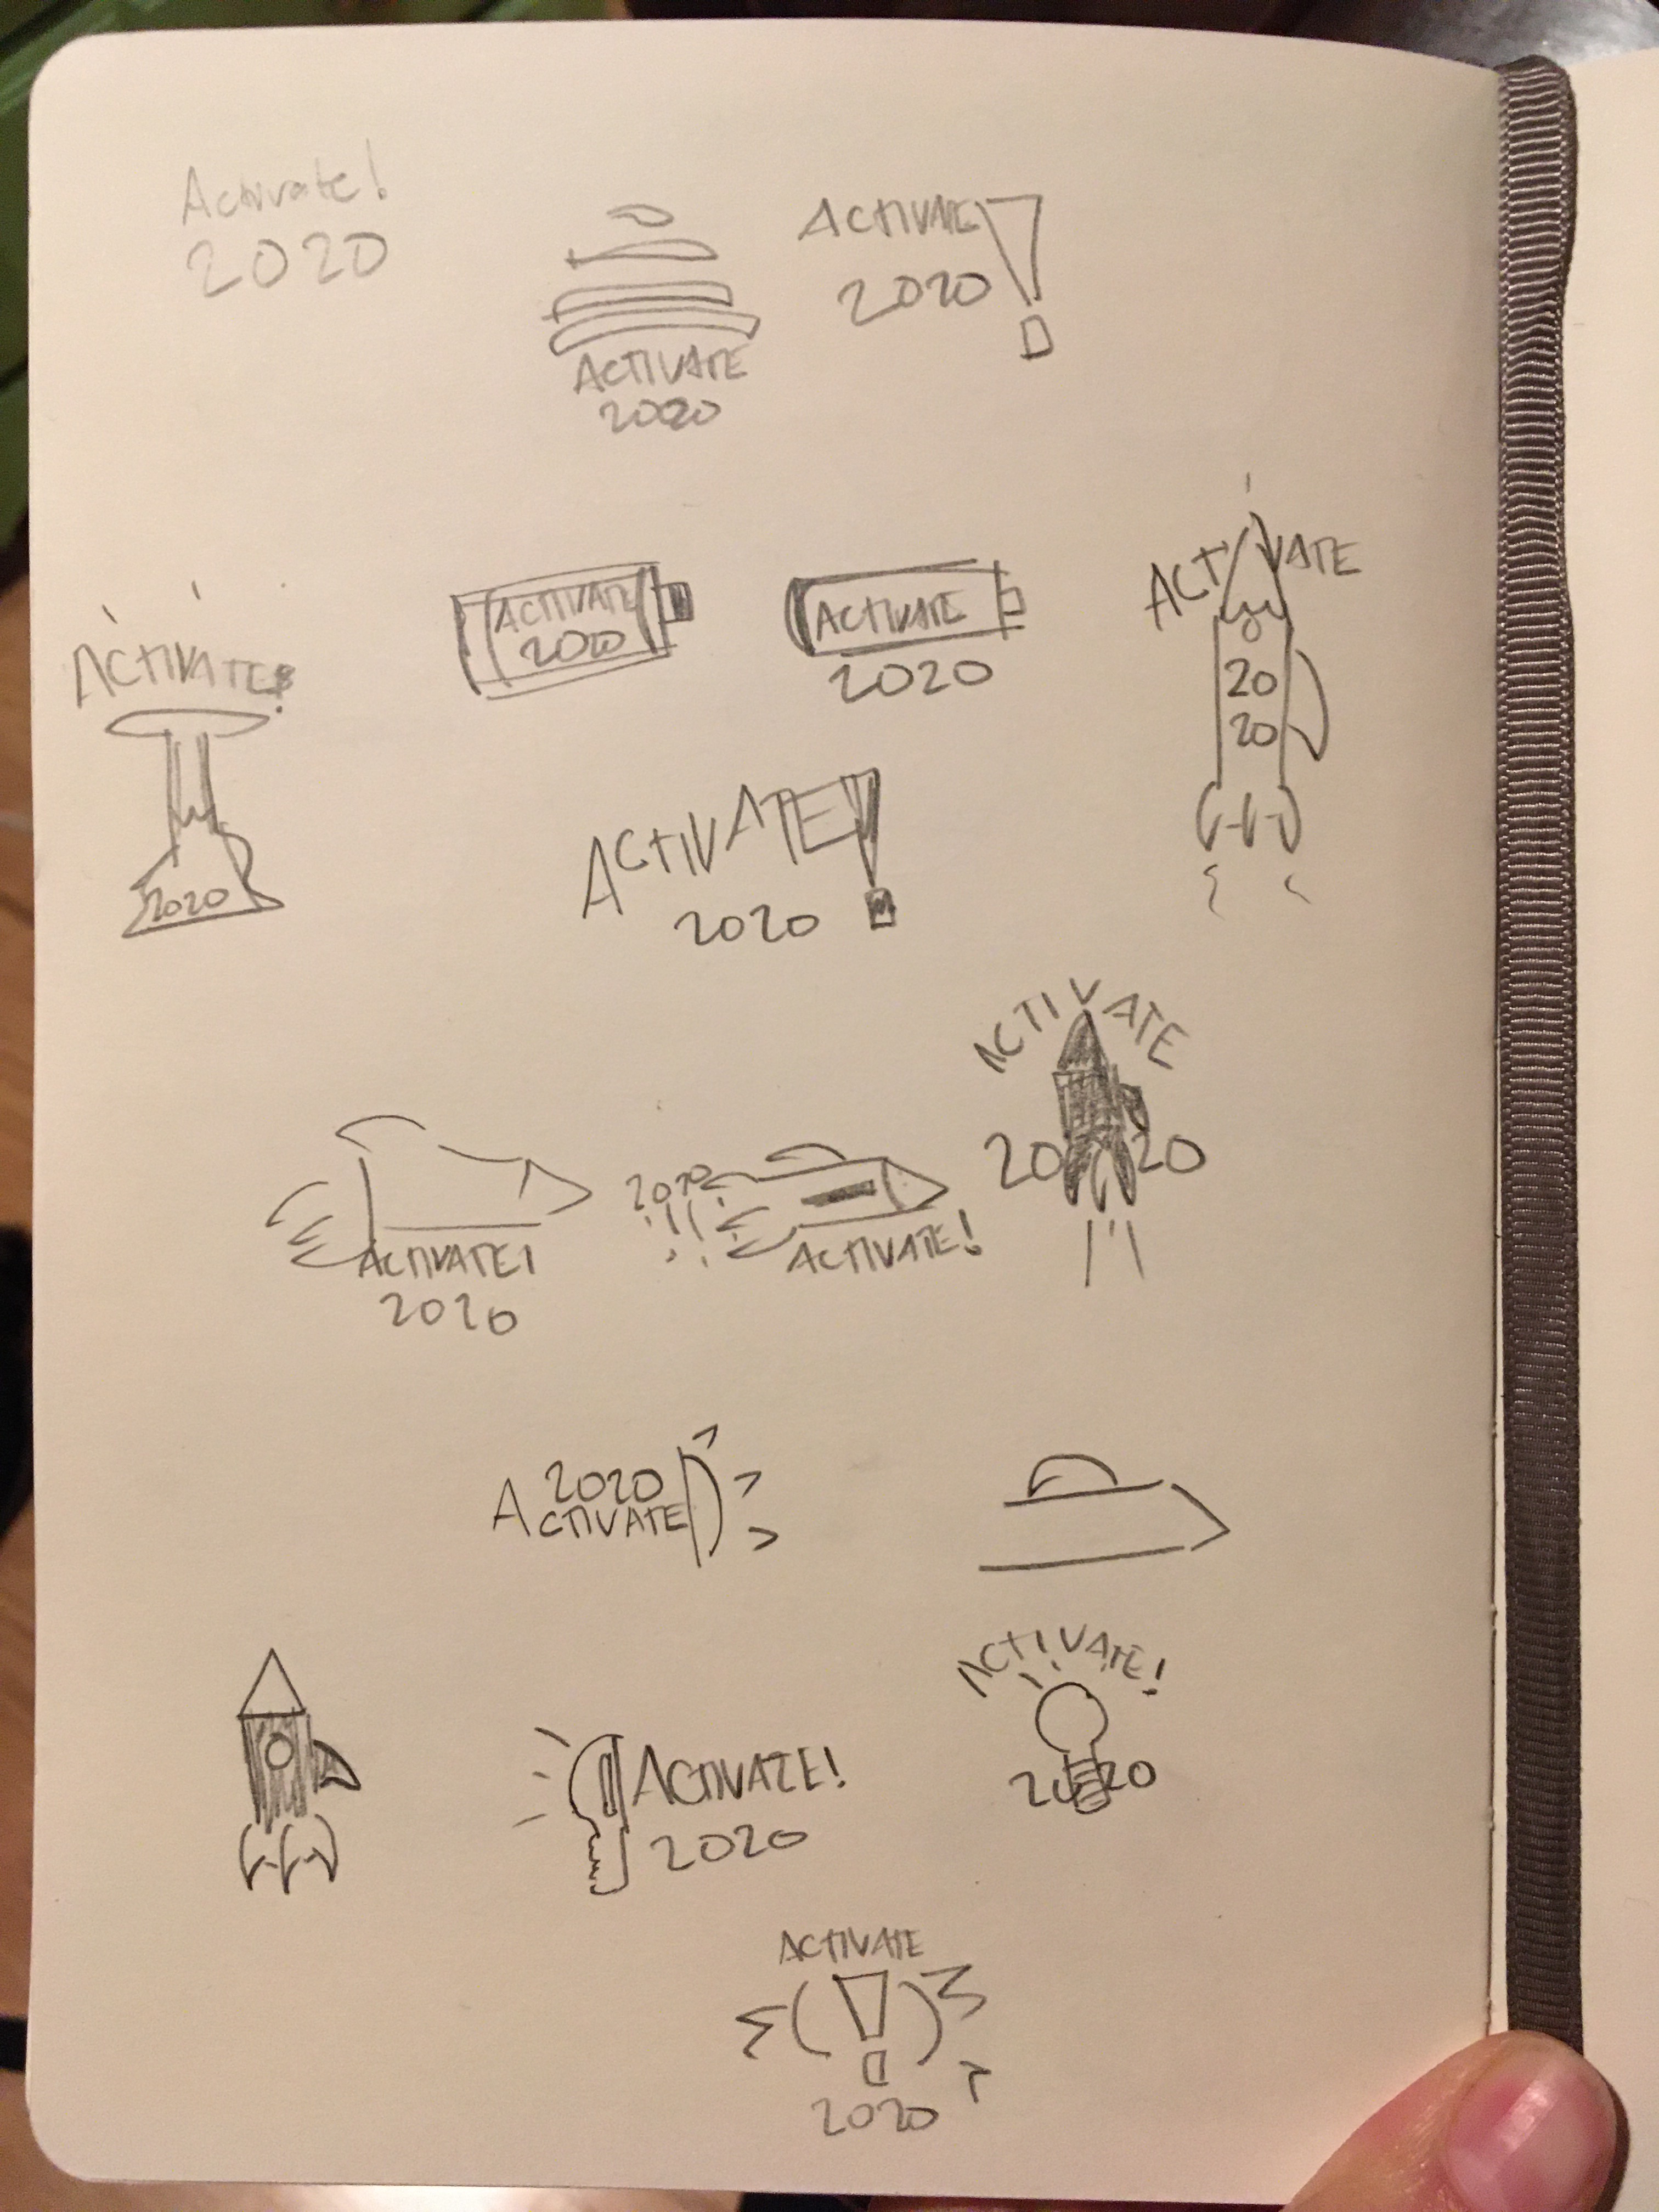 Activate!
2020
ACTIVATE
2020
ACTIVATE!
2020
ACTIVATE!
2020
ACTIVATE
2020
ACTIVATE
2020
ACTIVATE
20
20
ACTIVATE!
2020
ACTIVATE
20 20
ACTIVATE!
2020
2020
ACTIVATE!
2020
ACTIVATE
ACTIVATE!
2020
ACTIVATE!
2020
ACTIVATE
!
2020